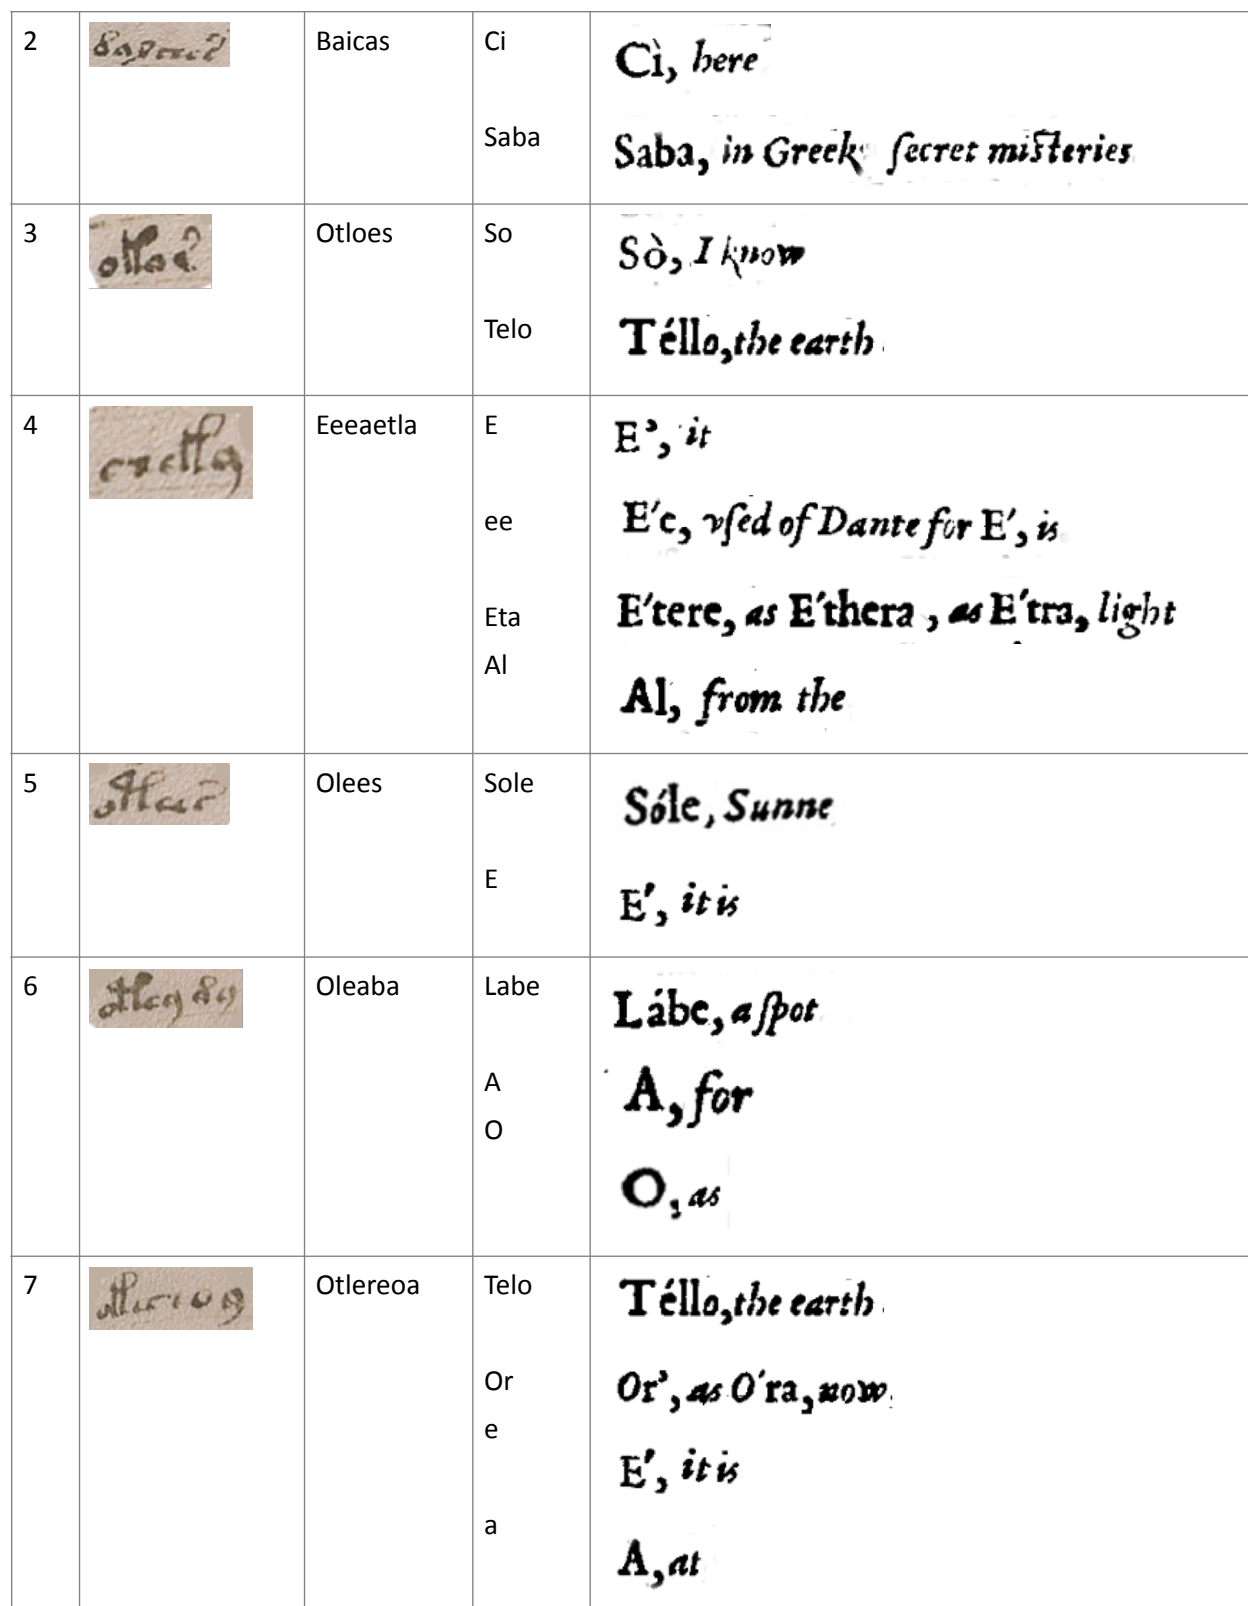 2 Baicas Ci Cì, here
Saba Saba, in Greek ſecret miſteries
3 Otloes So Sò, I know
Telo Téllo, the earth.
4 Eeeaetla E E', it
ee E'e, vſed of Dante for E', is
Eta E'tere, as E'thera, as E'tra, light
Al Al, from the
5 Olees Sole Sóle, Sunne
E E', it is
6 Oleaba Labe Lábe, a ſpot
A A, for
O O, as
7 Otlereoa Telo Téllo, the earth.
Or Or', as O'ra, now.
e E', it is
a A, at